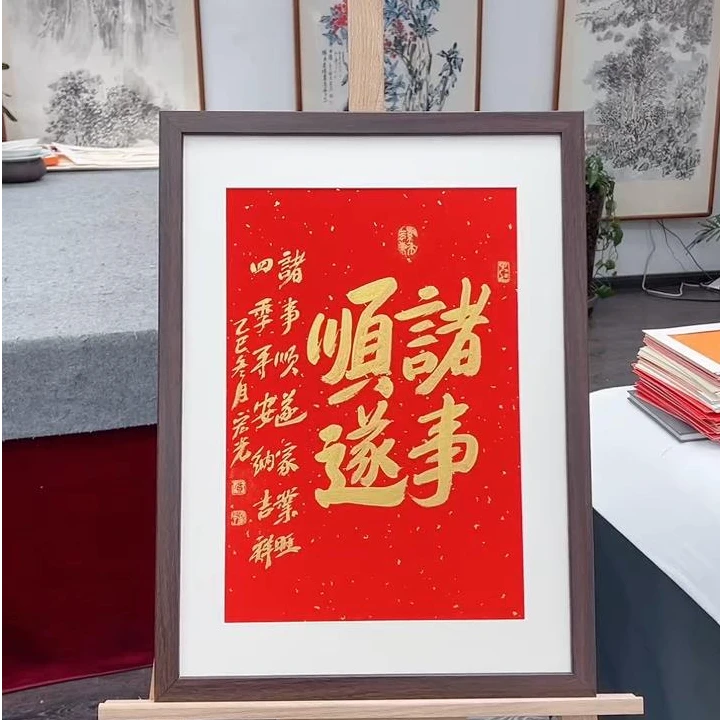 諸事
順遂
諸事顺遂家業旺
四季平安納吉祥
乙巳冬月宏光